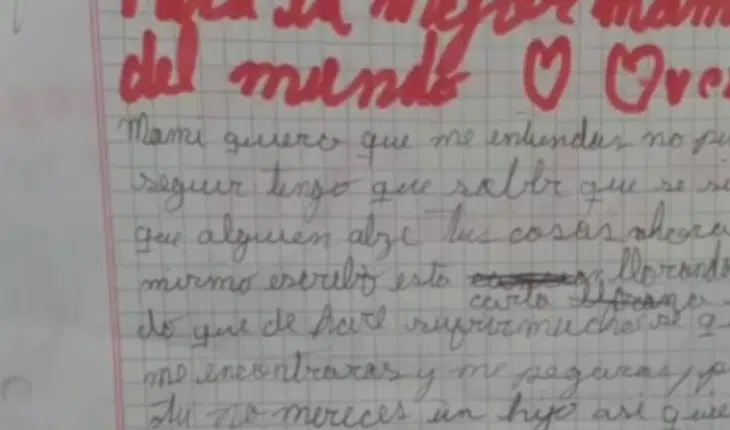 la mejor mam
del mundo
Mami quiero que me entiendas no pu
seguir tengo que saber que se si
que alguien alze tus cosas ahora
mismo escribo esta llorando
carta
do que de hare sufrir mucho se q
me encontraras y me pegaras, p
tu no mereces un hijo asi que